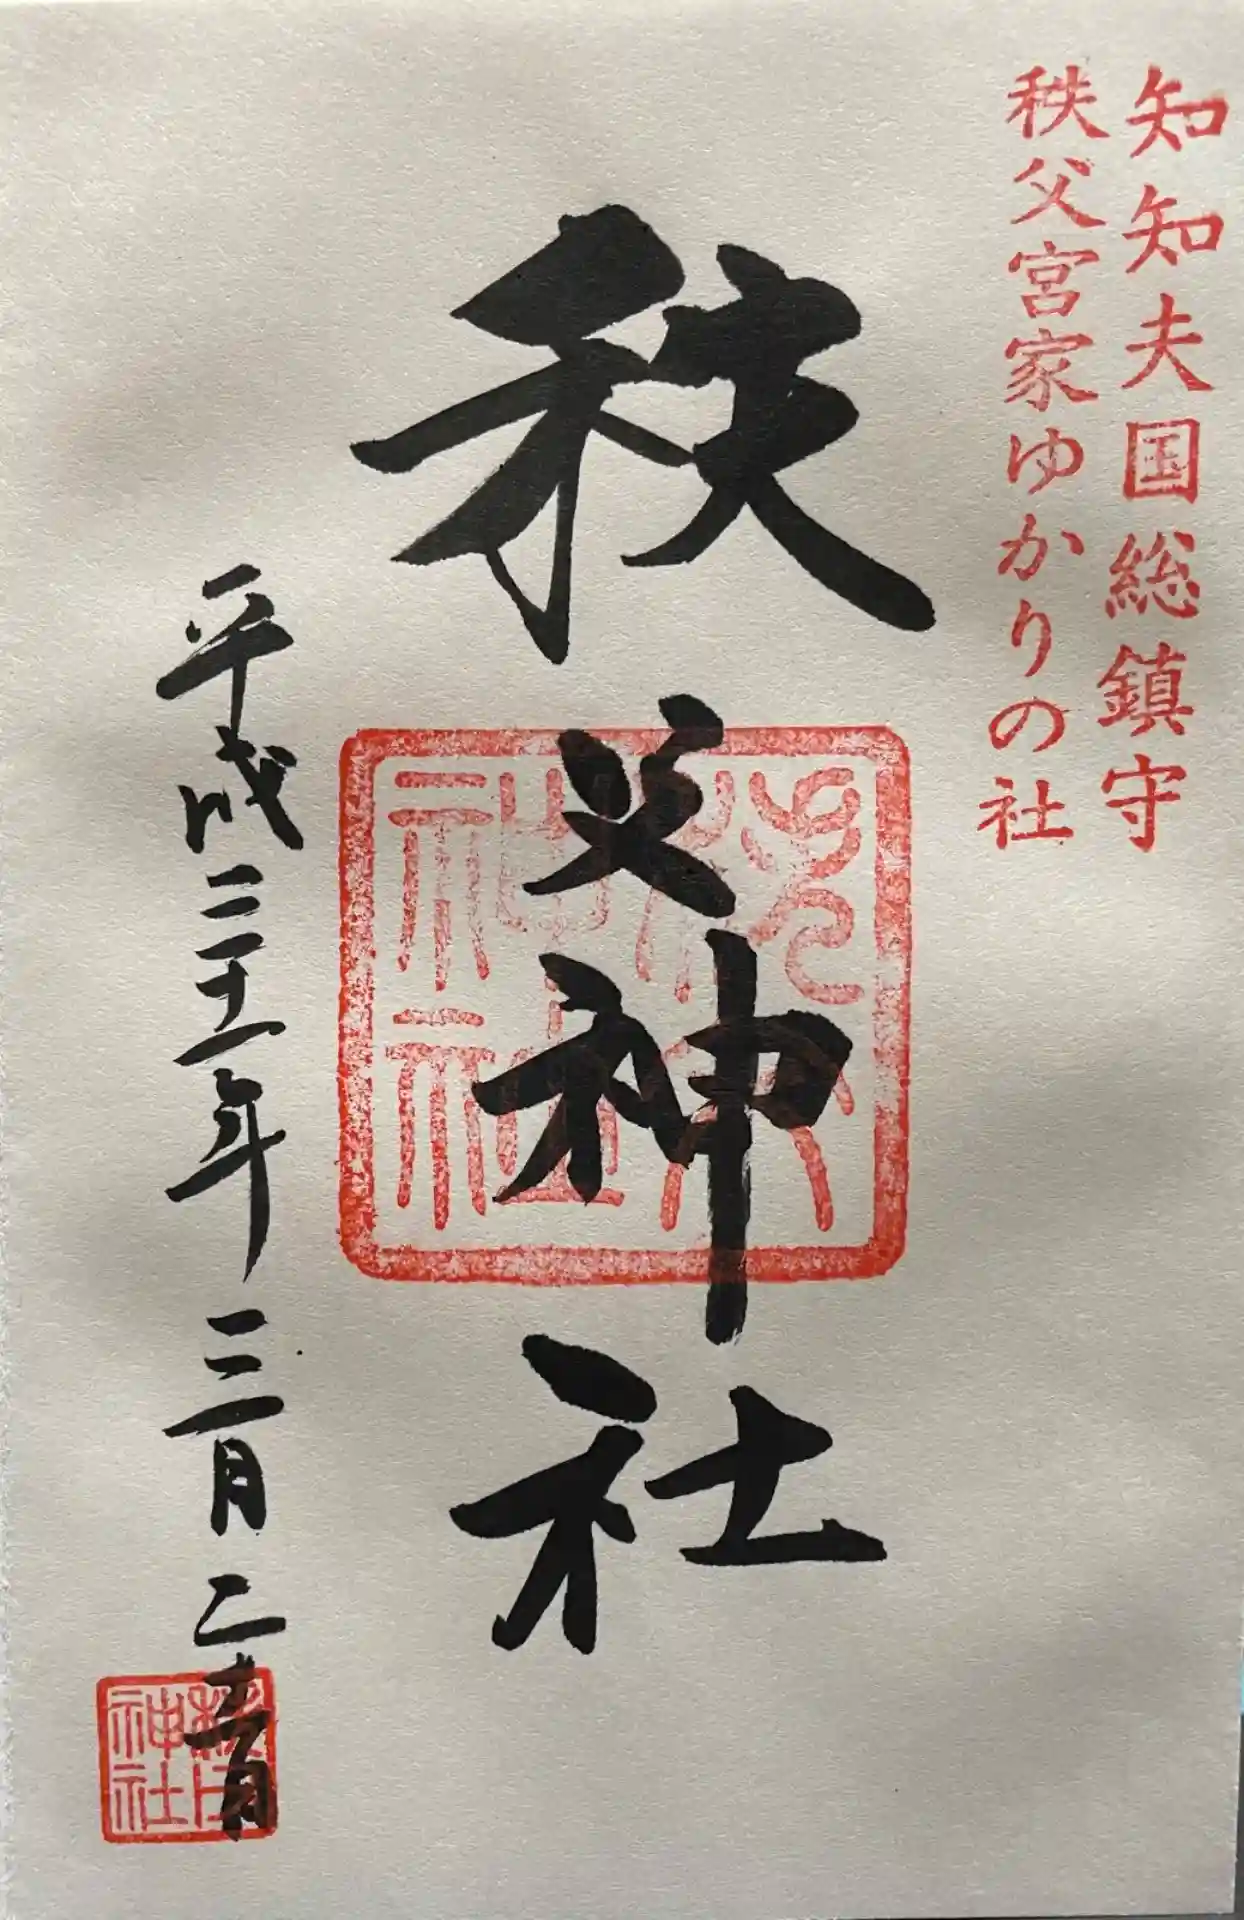 知知夫国総鎮守
秩父宮家ゆかりの社
秩父神社
秩父神社
平成三十一年三月二十
秩父神社